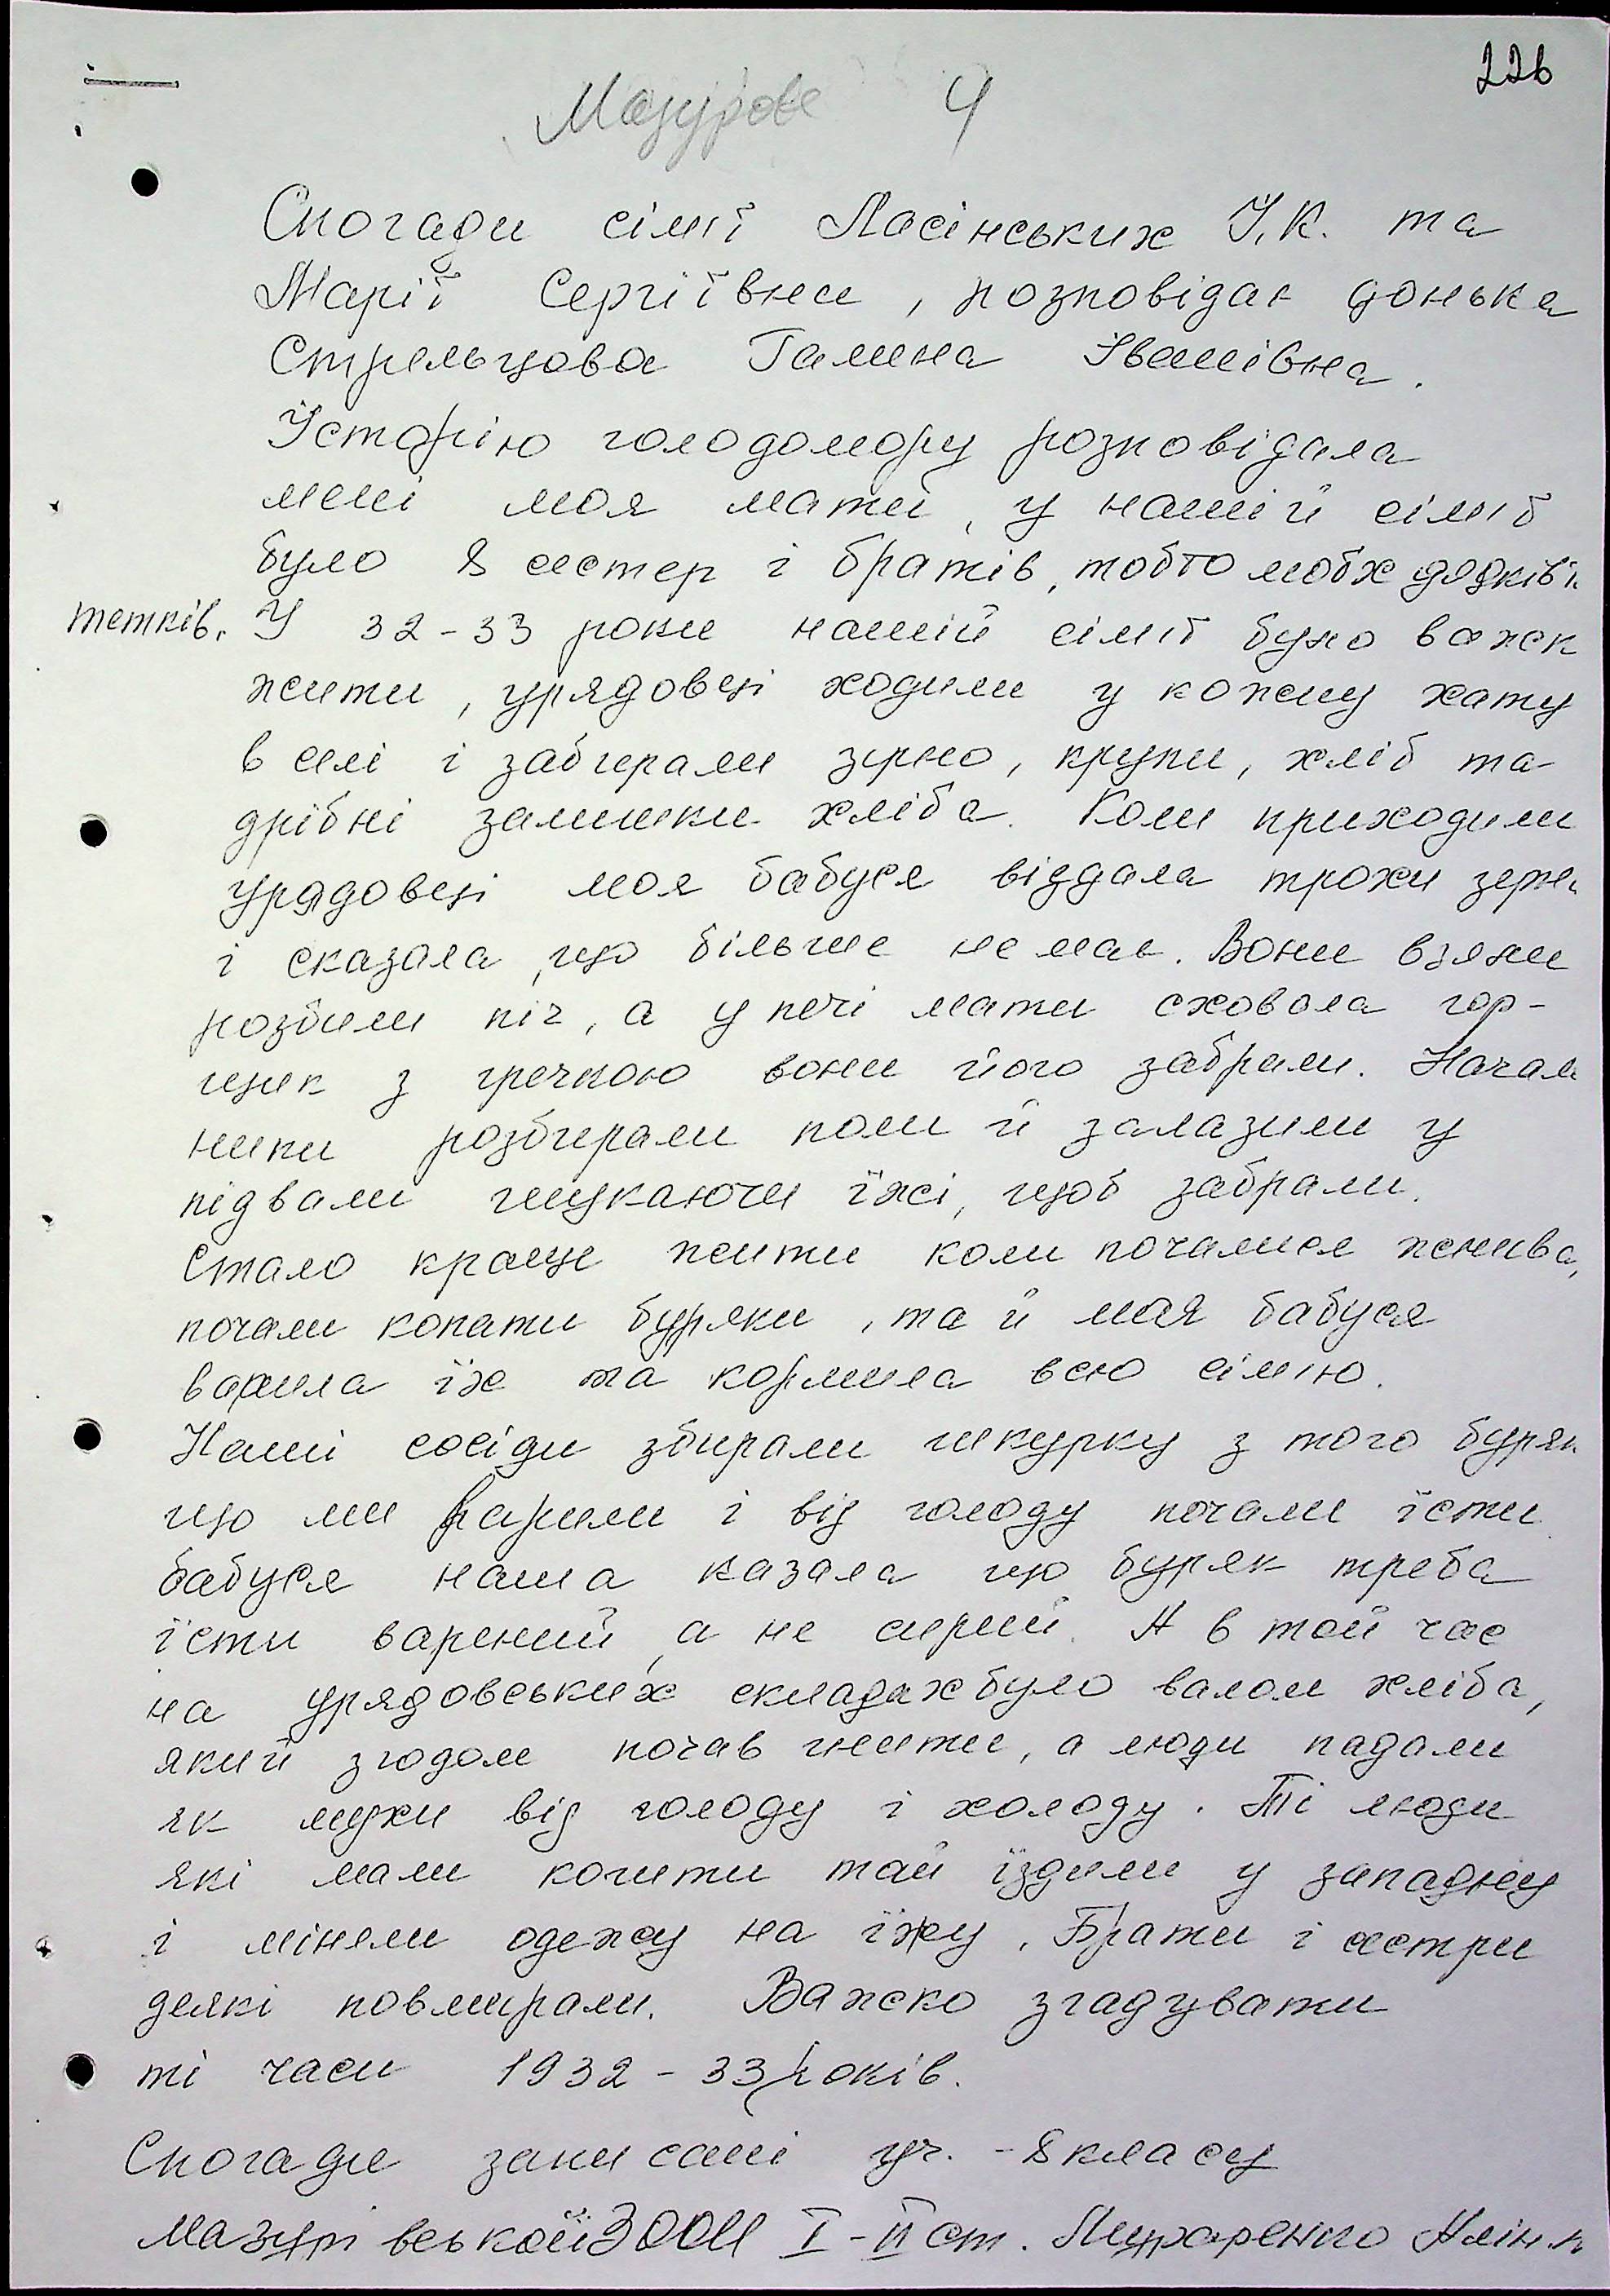 226
Мазурове 4
Спогади сімї Ласінських І.К. та
Марії Сергіївни, розповідає донька
Стрельцова Галина Іванівна.
Історію голодомору розповідала
мені моя мати, у нашій сімїї
було 8 сестер і братів, тобто моїх дядьків і
тетків. У 32-33 роки нашій сімї було важк
жити, урядовці ходили у кожну хату
в селі і забирали зерно, крупи, хліб та
дрібні залишки хліба. Коли приходили
урядовці моя бабуся віддала трохи зерн
і сказала, що більше немає. Вони взяли
розбили піч, а у печі мати сховала гор-
щик з гречкою вони його забрали. Начал
ники розбирали поли й залазили у
підвали шукаючи їжі, щоб забрали.
Стало краще жити коли почалися жнива,
почали копати буряки, та й моя бабуся
варила їх та кормила всю сімю.
Наші сосіди збирали шкурку з того буряк
що ми варили і від голоду почали їсти
бабуся наша казала що буряк треба
їсти варений, а не сирий. А в той час
на урядовських складах було валом хліба,
який згодом почав гнити, а люди падали
як мухи від голоду і холоду. Ті люди
які мали кошти тай їздили у западну
і міняли одежу на їжу. Брати і сестри
деякі повмирали. Важко згадувати
ті часи 1932-33 років.
Спогади записані уч. - 8 класу
Мазурівської ЗОШ I-II ст.